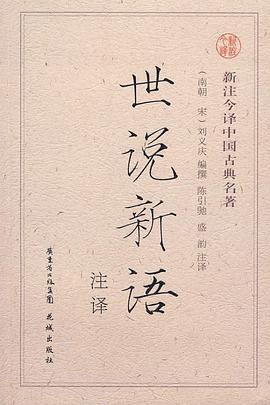 新注今译中国古典名著
(南朝 宋)刘义庆 编撰 陈引驰 盛韵 注译
世说新语
注译
广东省出版集团
花城出版社